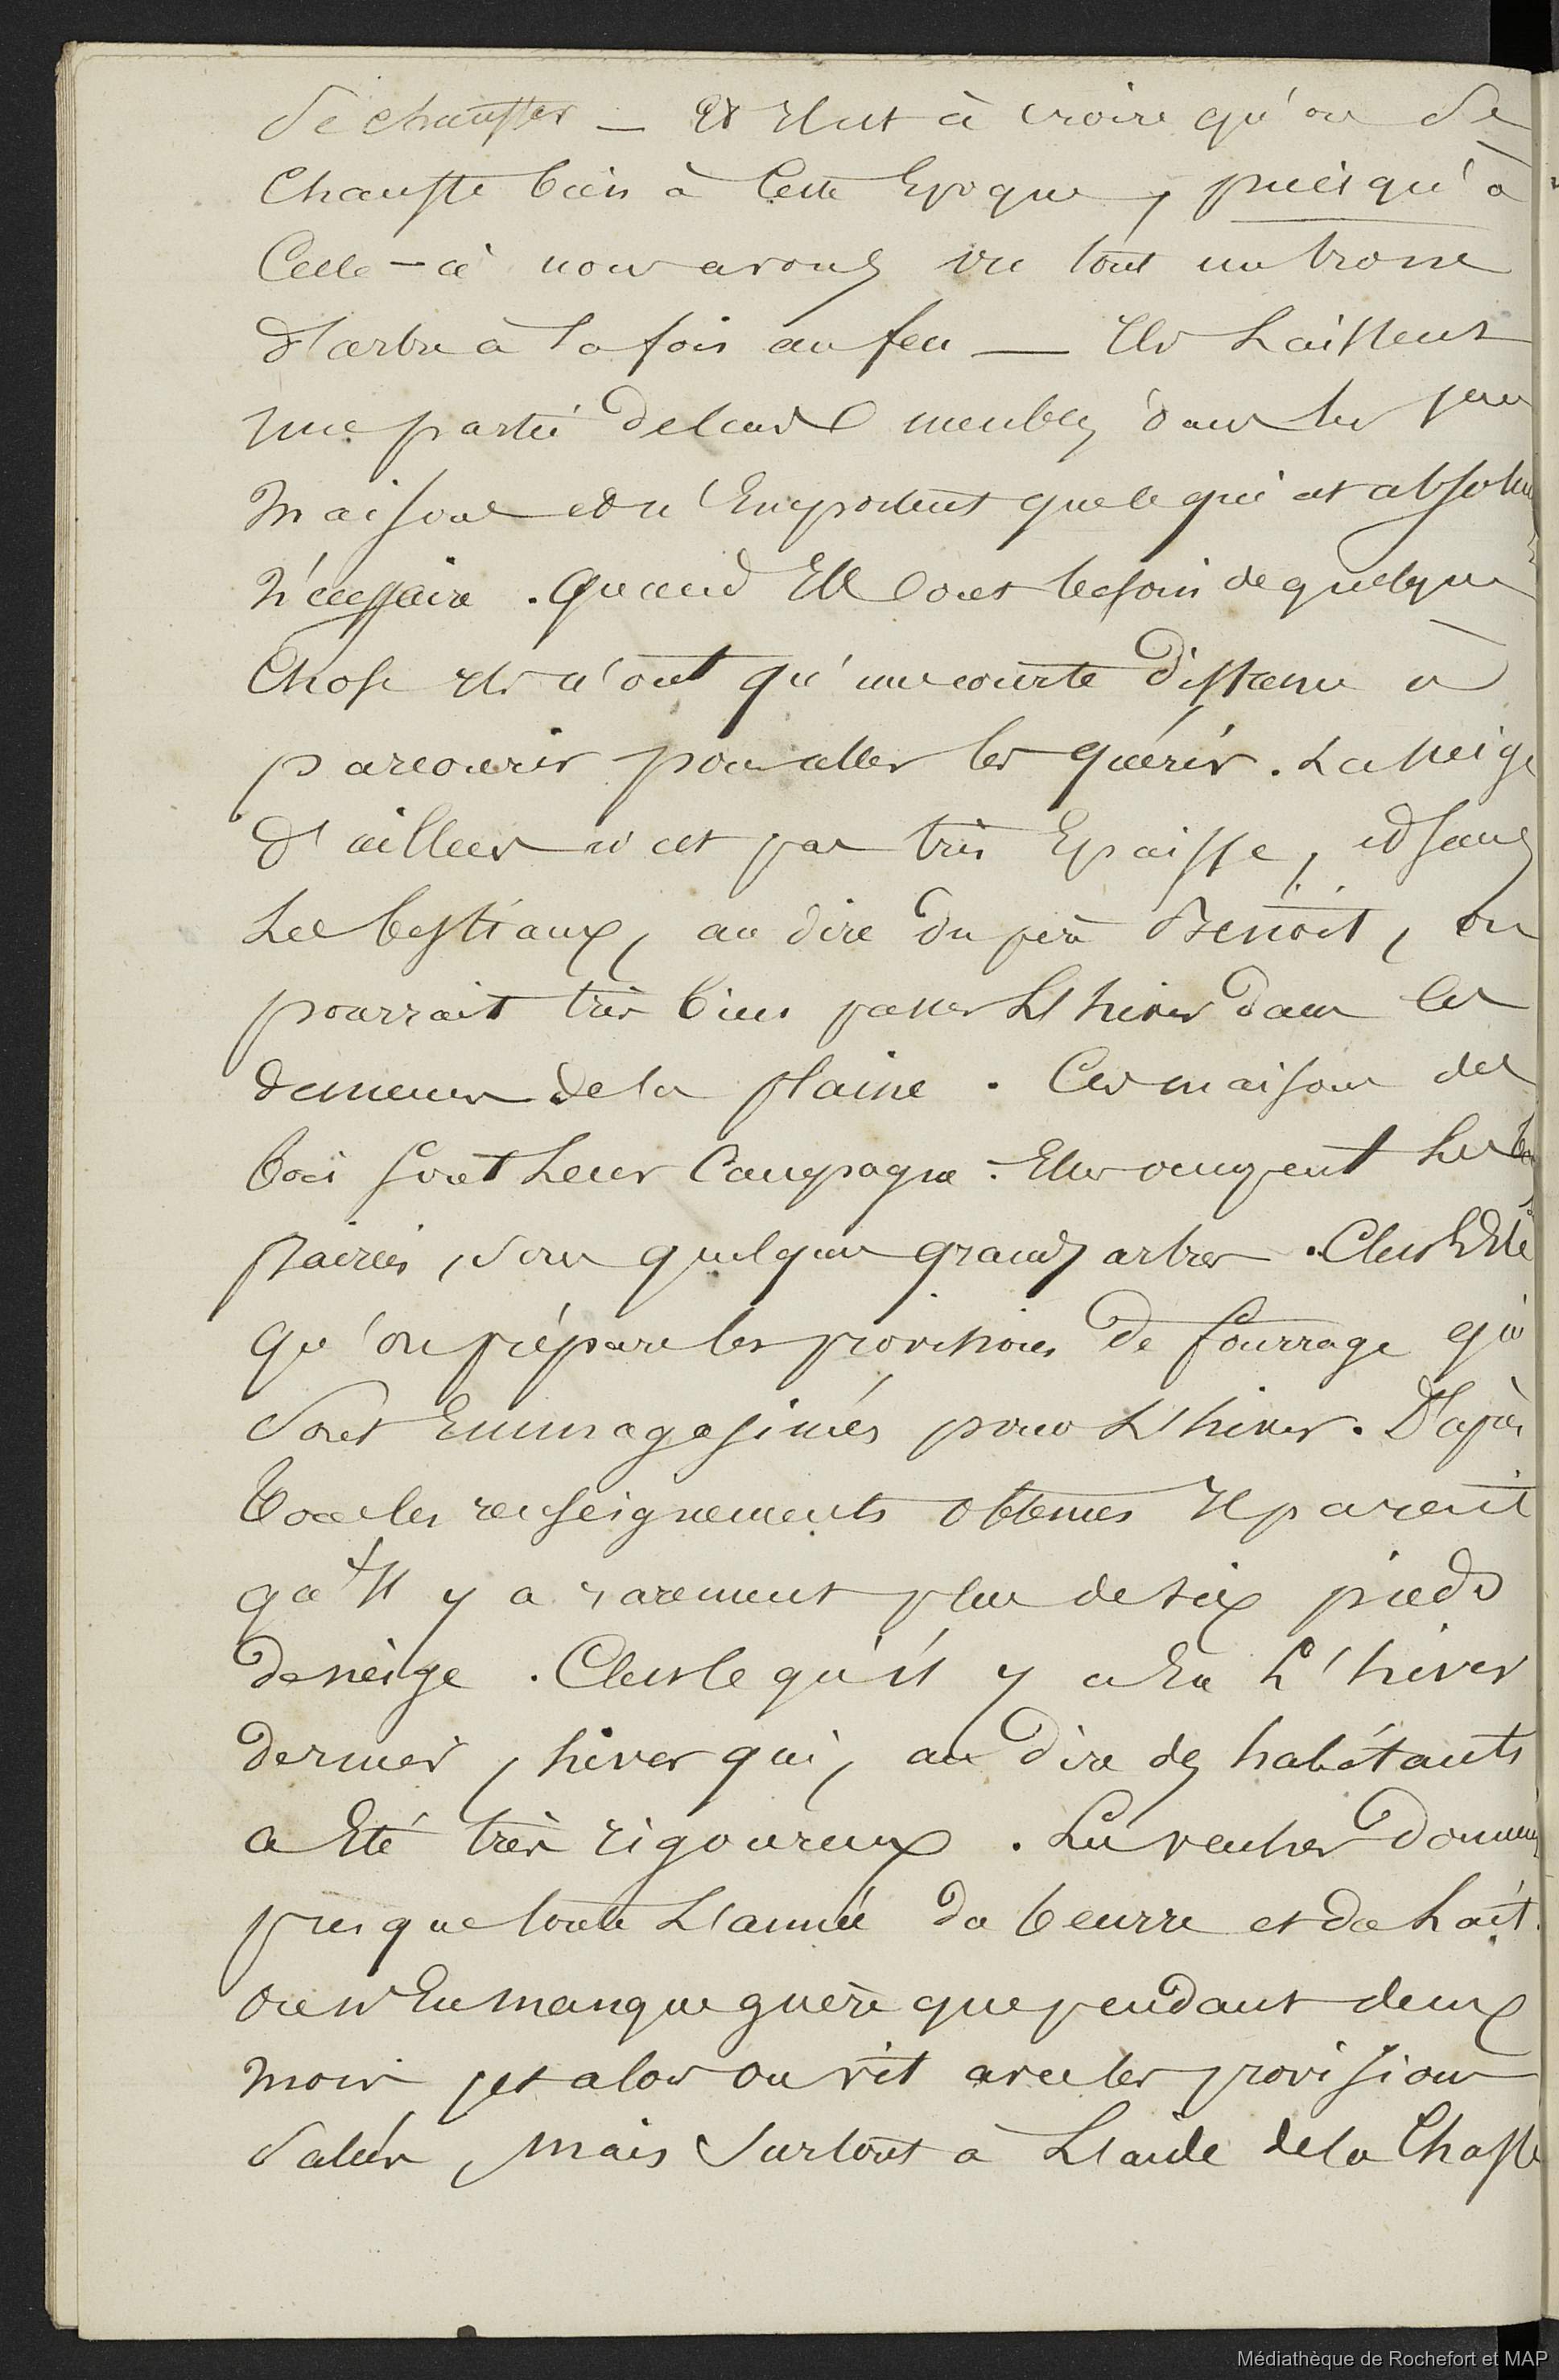 se chauffer — Et Il est à croire qu'on se
Chauffe bien à Cette Epoque, puisqu'à
Celle-ci nous avons vu tout un tronc
d'arbre à la fois au feu — Ils Laissent
une partie de leurs meubles dans les
maisons et n'Emportent que ce qui est absolu
nécessaire. Quand Ils ont besoin de quelque
Chose ils n'ont qu'une courte distance à
parcourir pour aller les quérir. La Neige
d'ailleurs n'est pas très Epaisse, et sans
Les bestiaux, au dire du père Benoit, on
pourrait très bien passer L'hiver dans les
demeures de la plaine. Ces maisons des
bois sont Leur Campagne. Elles occupent Les
prairies, sous quelques grands arbres. C'est L'Eté
qu'on prépare les provisions de fourrage qui
sont Emmagasinés pour L'hiver. D'après
tous les renseignements obtenus Il parait
qu'Il y a rarement plus de six pieds
de neige. C'est ce qu'il y a Eu L'hiver
dernier, hiver qui, au dire des habitants
a Eté très rigoureux. Les vaches donnent
presque toute L'année du beurre et du Lait.
on n'En manque guère que pendant deux
mois, et alors on vit avec les provisions
salées, mais surtout à L'aide de la Chasse
Médiathèque de Rochefort et MAP